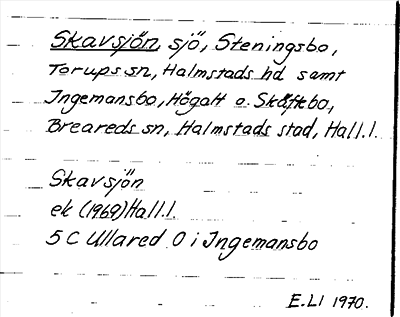 Skavsjön, sjö, Steningsbo,
Torups sn, Halmstads hd samt
Ingemansbo, Högalt o. Skäftebo,
Breareds sn, Halmstads stad, Hall.l.
Skavsjön
ek (1969) Hall.l.
5 C Ullared O i Ingemansbo
E.LI 1970.